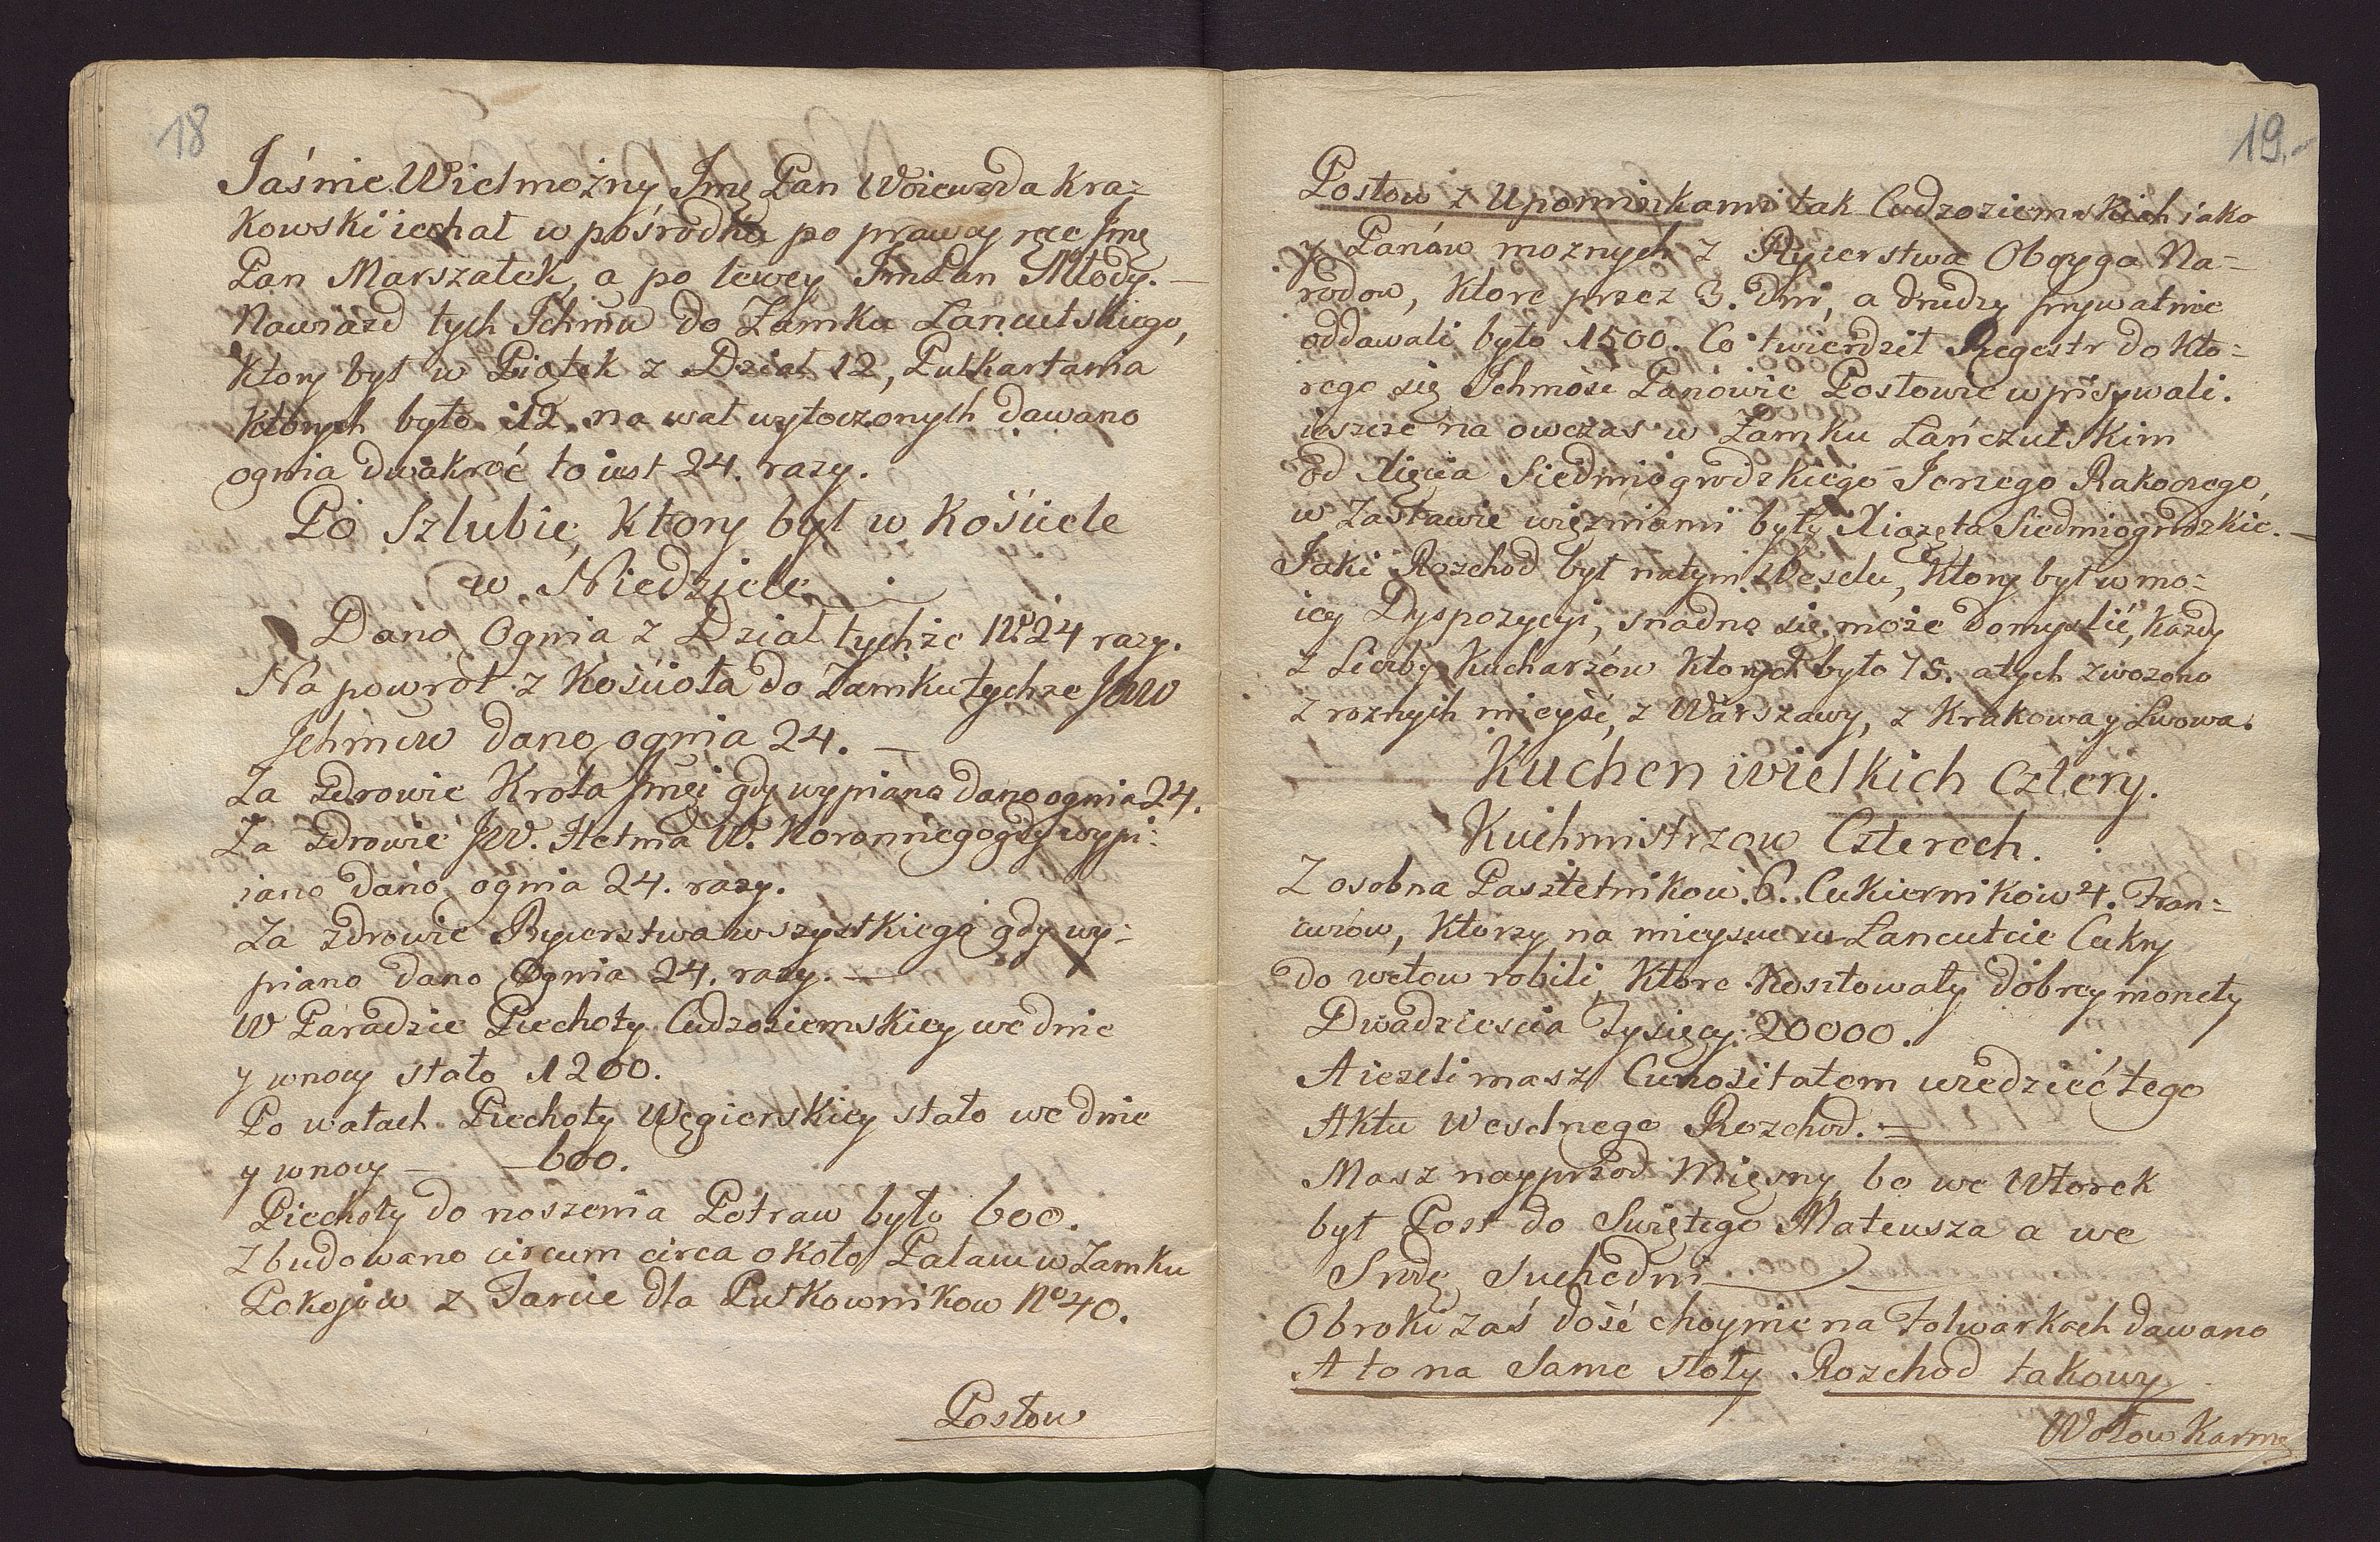 18
Jaśnie Wielmożny Jmę Pan Woiewoda Kra-
kowski iechał w pośrodku po prawey ręce Jmę
Pan Marszałek, a po lewey Jm Pan Młody. —
Nawiazd tych Ichmw do Zamku Łancutskiego,
Ktory był w Piątek z Dział 12, Pułkartania
Ktorych było 12. na wał wytoczonych dawano
ognia dwakroć to iest 24. razy.
Po Szlubie, Ktory był w Kośiiele
w. Niedziele
Dano Ognia z Dział tychże No 24 razy.
Na powrót z Kośiioła do Zamku tychże JWW
Jchmciw dano ognia 24. —
Za Zdrowie Krola Jmći gdy wypiano dano ognia 24.
Za Zdrowie JW. Hetma W. Koronnego gdy wypi-
iano dano ognia 24. razy.
Za zdrowie Rycerstwa wszystkiego gdy wy-
piano dano Ognia 24. razy. —
W Paradzie Piechoty Cudzoziemskiey we dnie
y wnocy stało 1200.
Po wałach Piechoty Węgierskiey stało we dnie
y wnocy — — 600.
Piechoty do noszenia Potraw było 600.
Zbudowano circum circa około Pałacu w Zamku
Pokojów z Tarcic dla Pułkownikow No 40.
Posłow
19.
Posłow z Upominkami tak Cudzoziemskich iako
y Panów moznych z Rycerstwa Oboyga Na-
rodow, Ktore przez 3. dni, a drudzy prywatnie
oddawali było 1500. Co twierdził Regestr do Kto-
rego się Ichmość Panowie Posłowie wpisywali.
ieszcze na owczas w Zamku Łańczutskim
od Xięcia Siedmiogrodzkiego Jerzego Rakoczego,
w Zastawie więzniami były Xiązęta Siedmiogrodzkie. —
Jaki Rozchod był natym Weselu, Ktory był w mo-
iey Dyspozycyi, snadno się może domyslić, każdy
z Liczby Kucharzów Ktorych było 75. atych zwozono
z roznych mieysć, z Warszawy, z Krakowa y Lwowa.
Kuchen wielkich Cztery.
Kuchmistrzow Czterech.
Z osobna Pasztetnikow. 6. Cukierników 4. Fran-
cuzów, Ktorzy na mieyscu w Lancutcie Cukry
do wetow robili, Ktore Kosztowały dobrey monety
Dwadziescia Tysięcy. 20000.
A iezeli masz Curiositatem wiedzieć tego
Aktu Weselnego Rozchod. —
Masz nayprzod Mięsny, bo we Wtorek
był Post do Swiętego Mateusza a we
Srodę Suchedni
Obroki zaś dość choynie na Folwarkach dawano
A to na Same stoły Rozchod takowy
Wołow Karmę